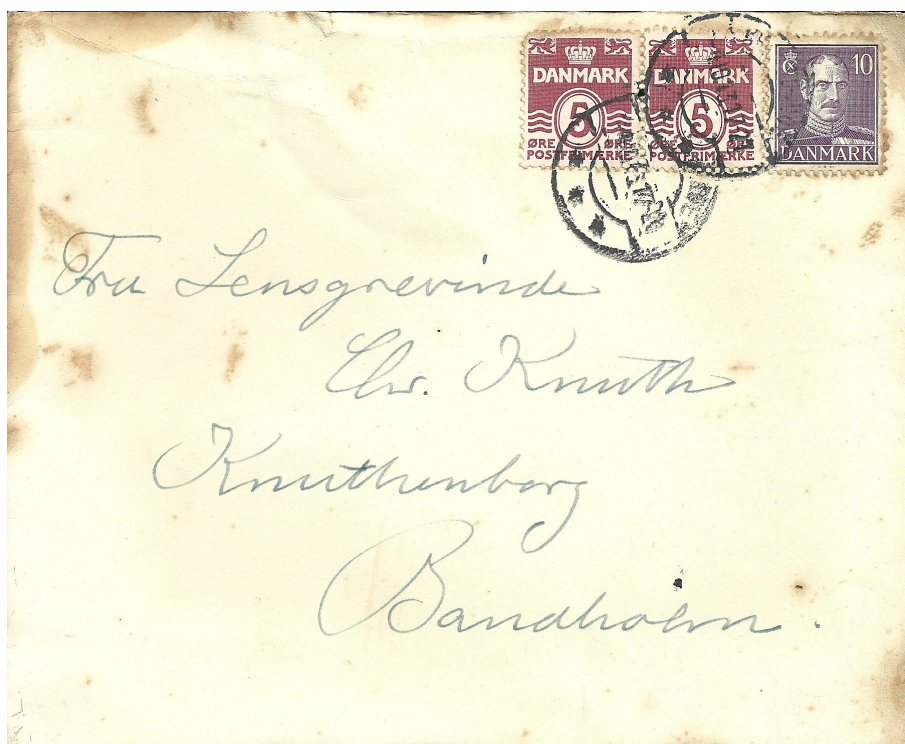 DANMARK
5
ØRE ØRE
POSTFRIMÆRKE
DANMARK
5
ØRE ØRE
POSTFRIMÆRKE
10
DANMARK
Fru Lensgrevinde
Chr. Knuth
Knuthenborg
Bandholm.